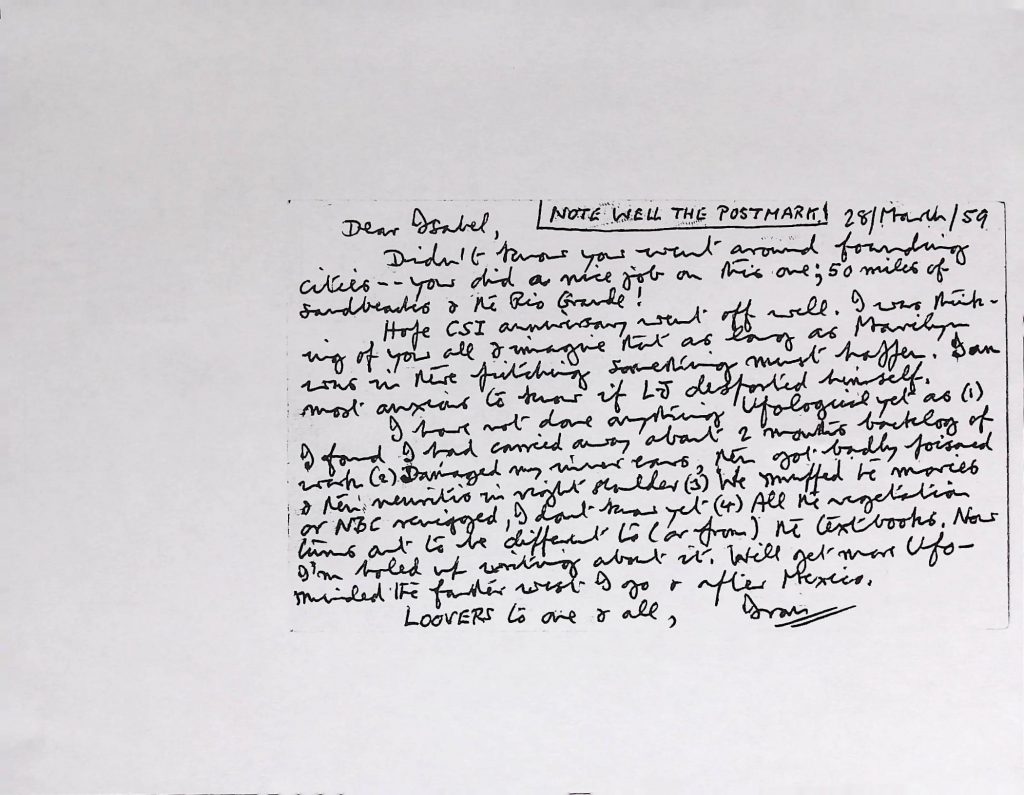 NOTE WELL THE POSTMARK!
28/March/59
Dear Isabel,
Didn't know you went around founding
cities -- you did a nice job on this one; 50 miles of
sandbeaches & the Rio Grande!
Hope CSI anniversary went off well. I was think-
ing of you all & imagine that as long as Marilyn
was in there pitching something must happen. I am
most anxious to know if LJ desported himself.
I have not done anything Ufological yet as (1)
I found I had carried away about 2 months backlog of
work (2) Damaged my inner ears, then got badly poisoned
& then neuritis in right shoulder (3) We muffed the movies
or NBC reneged, I dont know yet (4) All the vegetation
turns out to be different to (or from) the textbooks. Now
I'm holed up writing about it. Will get more Ufo-
minded the farther west I go & after Mexico.
LOOVERS to one & all,
Ivan